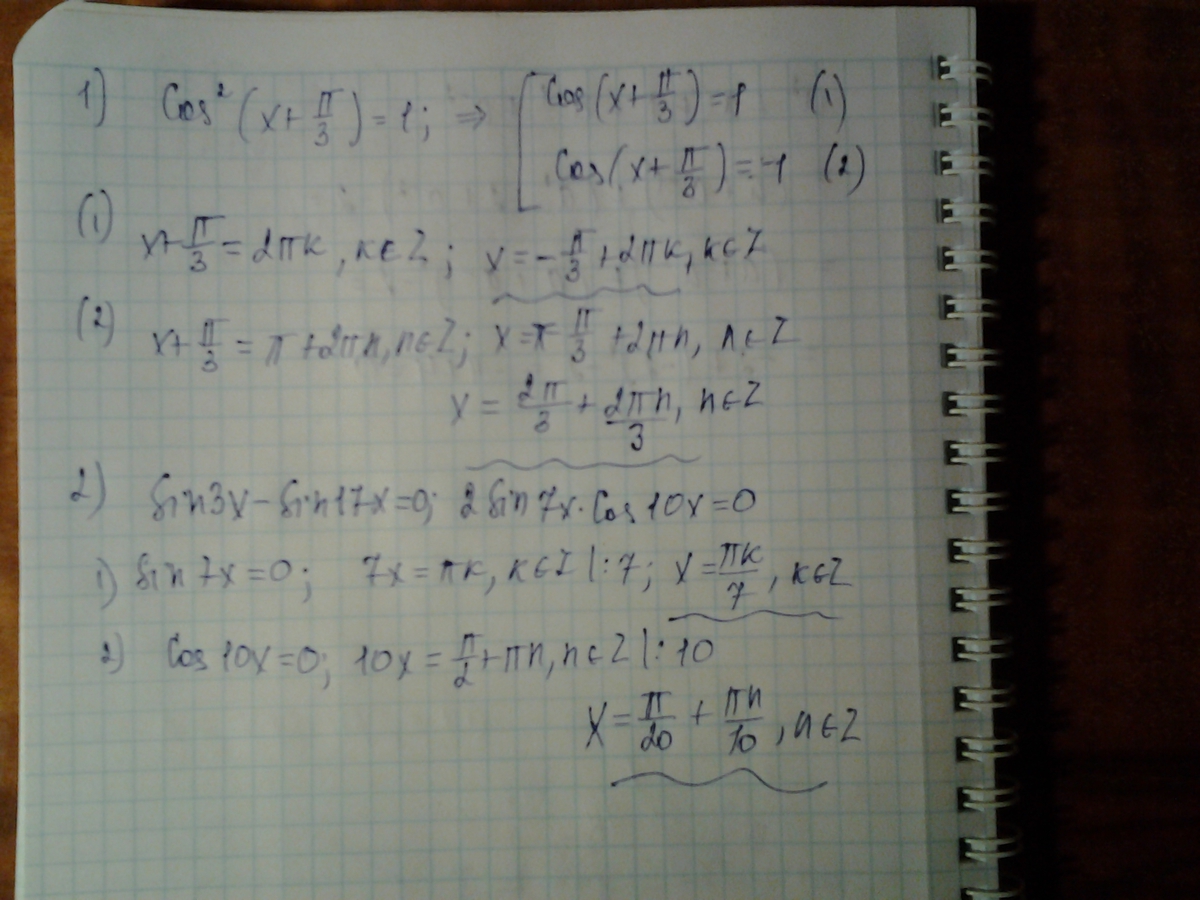 1) Cos²(x+π/3)=1; ⇒ [ Cos(x+π/3)=1 (1)
Cos(x+π/3)=-1 (2)
(1) x+π/3=2πк, к∈Z; x=-π/3+2πк, к∈Z
(2) x+π/3=π+2πn, n∈Z; x=π-π/3+2πn, n∈Z
x=2π/3+2πn/3, n∈Z
2) Sin3x-Sin17x=0; 2Sin7x·Cos10x=0
1) Sin7x=0; 7x=πк, к∈Z |:7; x=πк/7, к∈Z
2) Cos10x=0; 10x=π/2+πn, n∈Z |:10
x=π/20+πn/10, n∈Z